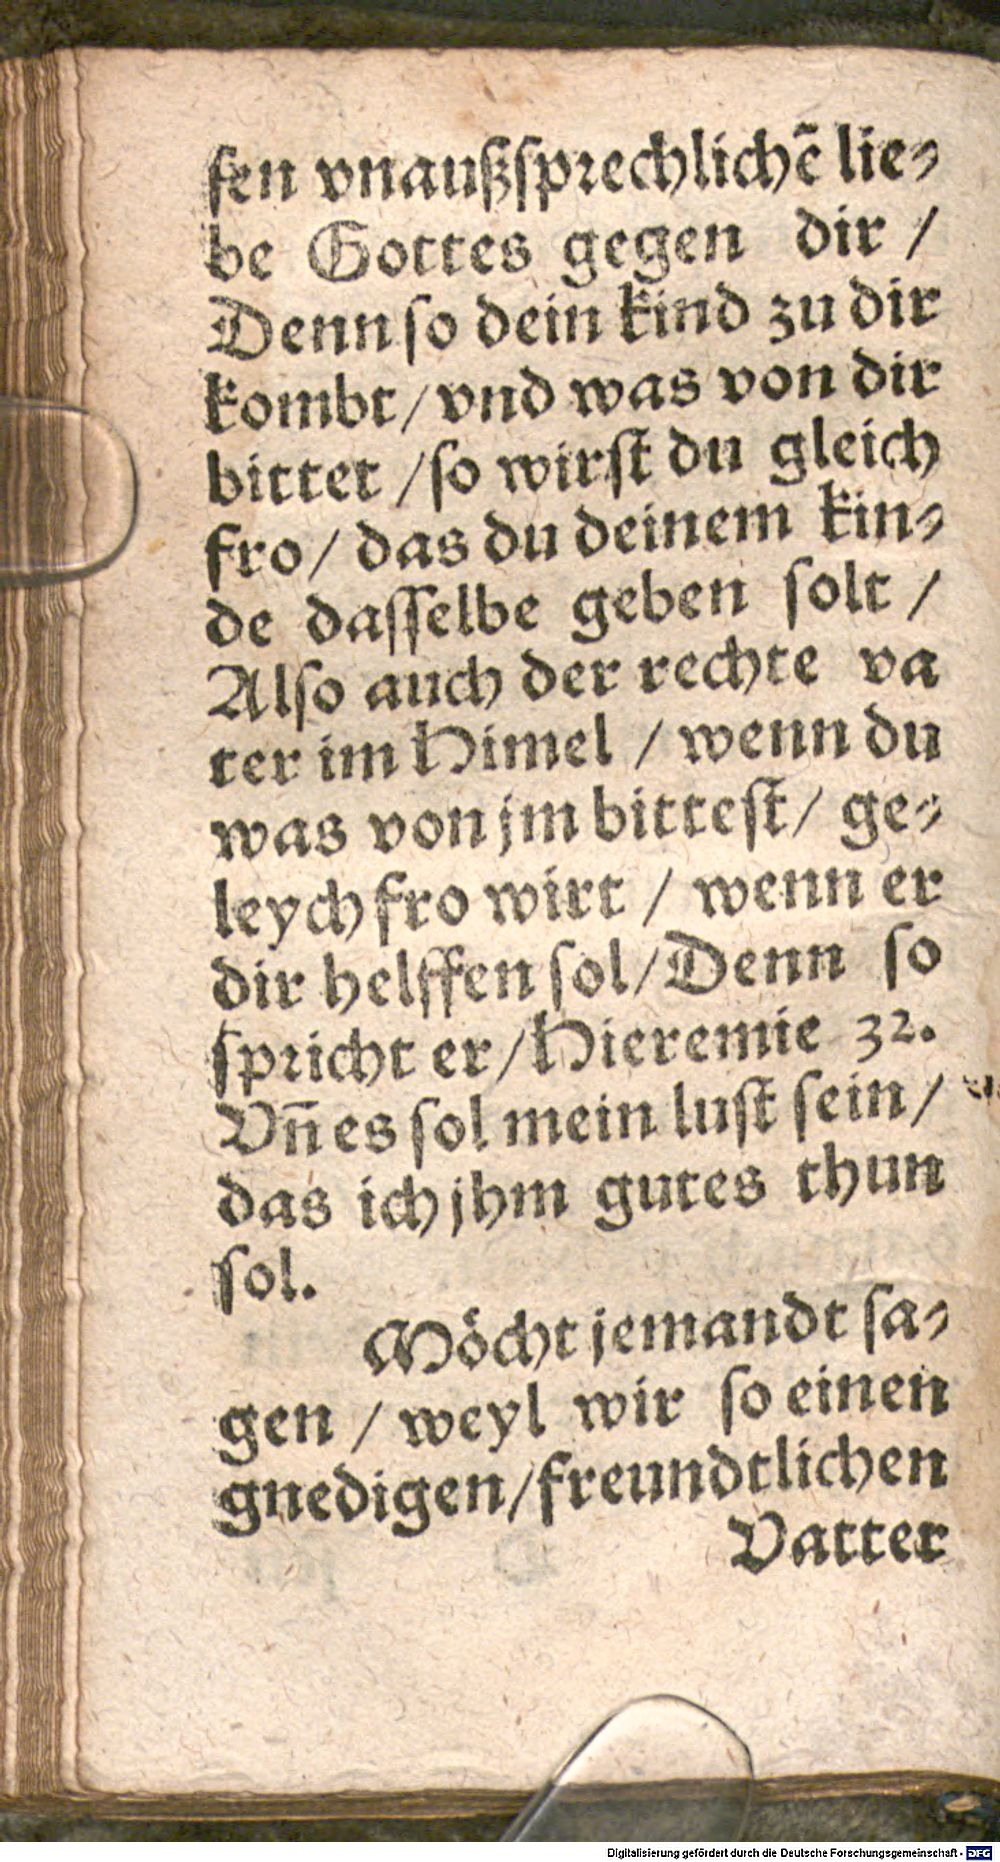 ſen vnaußſprechlichẽ lie⸗
be Gottes gegen dir /
Denn ſo dein kind zu dir
kombt / vnd was von dir
bittet / ſo wirſt du gleich
fro / das du deinem kin⸗
de daſſelbe geben ſolt /
Alſo auch der rechte va
ter im Himel / wenn du
was von jm bitteſt / ge⸗
leych fro wirt / wenn er
dir helffen ſol / Denn ſo
ſpricht er / Hieremie 32.
Vñ es ſol mein luſt ſein /
das ich jhm gutes thun
ſol.
Möcht jemandt ſa⸗
gen / weyl wir ſo einen
gnedigen / freundtlichen
Vatter
Digitalisierung gefördert durch die Deutsche Forschungsgemeinschaft - DFG